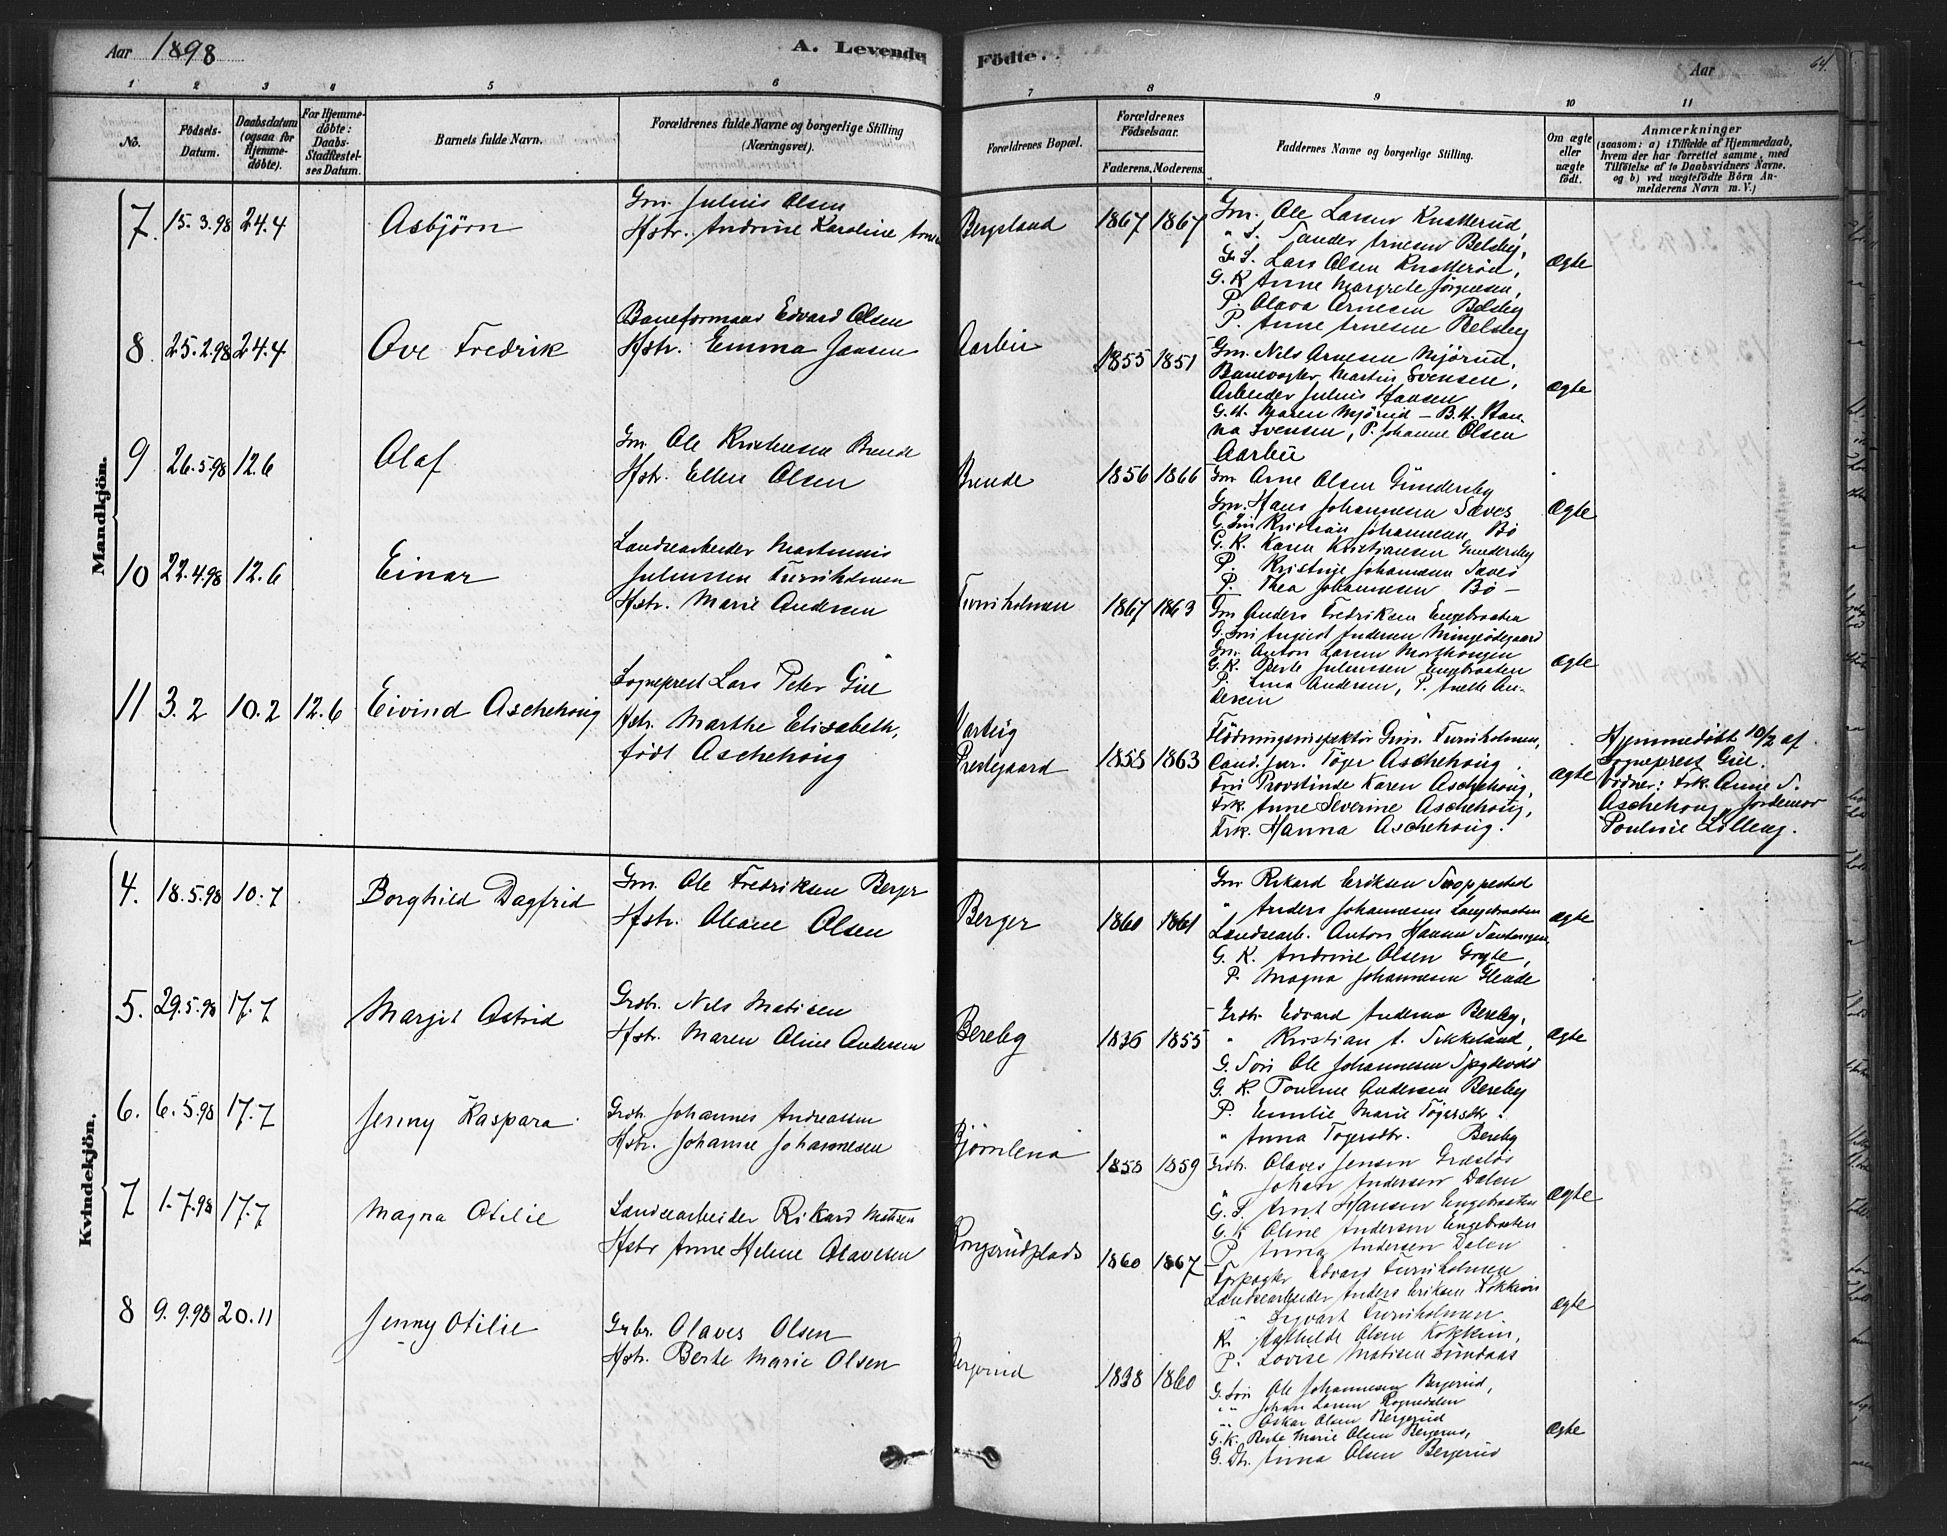 Aar 1898
A. Levende Födte.
Aar
64.
1 2 3 4 5 6 7 8 9 10 11
No.
Födsels-Datum.
Daabsdatum (ogsaa for Hjemmedöbte).
For Hjemmedöbte: Daabs-Stadfæstelses Datum.
Barnets fulde Navn.
Forældrenes fulde Navne og borgerlige Stilling (Næringsvei).
Forældrenes Bopæl.
Forældrenes Födselsaar.
Faderens. Moderens.
Faddernes Navne og borgerlige Stilling.
Om ægte eller uægte födt.
Anmærkninger
(saasom: a) i Tilfælde af Hjemmedaab, hvem der har forrettet samme, med Tilföielse af to Daabsvidners Navne. og b) ved uægtefödte Börn Anmelderens Navn m. V.)
Mandkjön.
7. 15.3.98 24.4 Asbjörn
Gm. Julius Olsen
Hstr. Andrine Karoline
Bergsland 1867 1867
Gm. Ole Larsen Knatterud,
" S. Sander Arnesen Belsby,
G. S. Lars Olsen Knatterød,
G. K Anne Margrete Jörgensen,
P. Olava Arnesen Belsby
P. Anne Arnesen Belsby
Ægte
8. 25.2.98 24.4 Ove Fredrik
Baneformand Edvard Olsen
Hstr. Emma Jansen
Aarbu 1855 1851
Gm. Nils Arnesen Mjørud,
Banevogter Martin Svensen,
Arbeider Julius Hansen
G. H. Maren Mjörud – B. H. Han-
na Svensen, P. Johanne Olsen
Aarbu
Ægte
9 26.5.98 12.6 Olaf
Gm. Ole Kristensen Brende
Hstr. Ellen Olsen
Brende 1856 1866
Gm Arne Olsen Gundersby
Gm. Hans Johannesen Sæves
G. Sön Kristian Johannesen Bö
G. K. Karen Kristiansen Gundersby
P. Kristine Johannesen Sæves
P. Thea Johannesen Bö –
Ægte
10 22.4.98 12.6 Einar
Landsearbeider Martinius
Juliussen Furuholmen
Hstr. Marie Andersen
Furuholmen 1867 1863
Gm Anders Fredriksen Engebraaten
G. Sön August Andersen Mingeødegaard
Gm. Anton Larsen
G. K. Berte Juliussen Engebraaten
P. Lina Andersen, P. Anette An-
dersen
ægte
11 3.2 10.2 12.6 Eivind Aschehoug
Sogneprest Lars Peter Giil
Hstr. Marthe Elisabeth,
födt Aschehoug
Varteig
Prestegaard 1858 1863
Flödningsinspektör Grim. Furuholmen,
Cand. jur. Töger Aschehoug.
Fru Provstinde Karen Aschehoug,
Frk. Anne Severine Aschehoug,
Frk. Hanna Aschehoug.
ægte
Hjemmedöbt 10/2 af
Sogneprest Giil.
Vidner: Frk. Anne S.
Aschehoug, Jordemor
Pouline Lilleng.
Kvindekjön.
4. 18.5.98 10.7 Borghild Dagfrid
Gm. Ole Fredriksen Berger
Hstr. Oleane Olsen
Berger 1860 1861
Gm Rikard Eriksen Snoppestad
" Anders Johannesen Langebraaten
Landsearb. Anton Hansen
G. K. Andrine Olsen Gryte,
P. Magna Johannesen Glende
ægte
5. 29.5.98 17.7 Margit Astrid
Grdbr. Nils Matisen
Hstr. Maren Oline Andersen
Bereby 1836 1855
Grdbr. Edvard Andersen Bereby,
" Kristian A. Sikkeland,
G. Sön Ole Johannesen
G. K. Pouline Andersen Bereby
P. Emilie Marie Tögersdtr.
" Anna Togersdtr. Bereby
ægte
6. 6.5.98 17.7 Jenny Kaspara
Grdb. Johannes Andreassen
Hstr. Johanne Johannesen
Björnlena 1858 1859
Grdbr. Olaves Jensen Graalös
" Johan Andersen Dalen
G. S. Arnt Hansen Engebraaten
G. K Oline Andersen Engebraaten
P. Anna Andersen Dalen
ægte
7 1.7.98 17.7 Magna Otilie
Landsearbeider Rikard Matisen
Hstr Anne Helene Olavesen
Kongsrudplads 1860 1867
Edvard Furuholmen
Landsearbeider Anders Eriksen Kokkim
" Sigvart Furuholmen
K. Mathilde Olsen Kokkim,
P. Lovise Matisen Sundaas
ægte
8 9.9.98 20.11 Jenny Otilie
Grbr. Olaves Olsen
Hstr. Berte Marie Olsen
Bergerud 1838 1860
G. Sön Ole Johannesen Bergerud,
" " Johan Larsen Rognedalen
" " Oskar Olsen Bergerud
G. K. Berte Marie Olsen Bergerud,
G. Dtr. Anna Olsen Bergerud
ægte